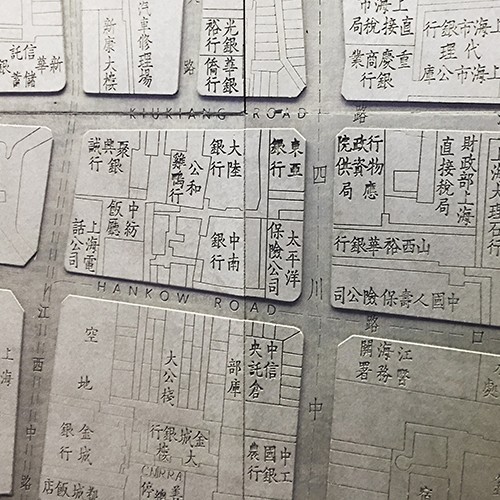 新華信託儲蓄銀
新康大樓
汽車修理場
光裕銀行
華僑銀行
路
上海市直接稅局
重慶商業銀行
上海市銀行代理上海市公庫
KIUKIANG ROAD
路
聚興誠銀行
公和雞鴨行
大陸銀行
東亞銀行
四川中
行政院物資供應局
財政部上海直接稅局
上海大理石行
中紡飯廳
上海電話公司
中南銀行
太平洋保險公司
山西裕華銀行
中國人壽保險公司
HANKOW ROAD
路
口
江西中路
空地
大公棧
中央信託
部庫倉
江海關
上海
金城銀行
金城銀行大樓
CNRRA
中國農工銀行
都城飯店